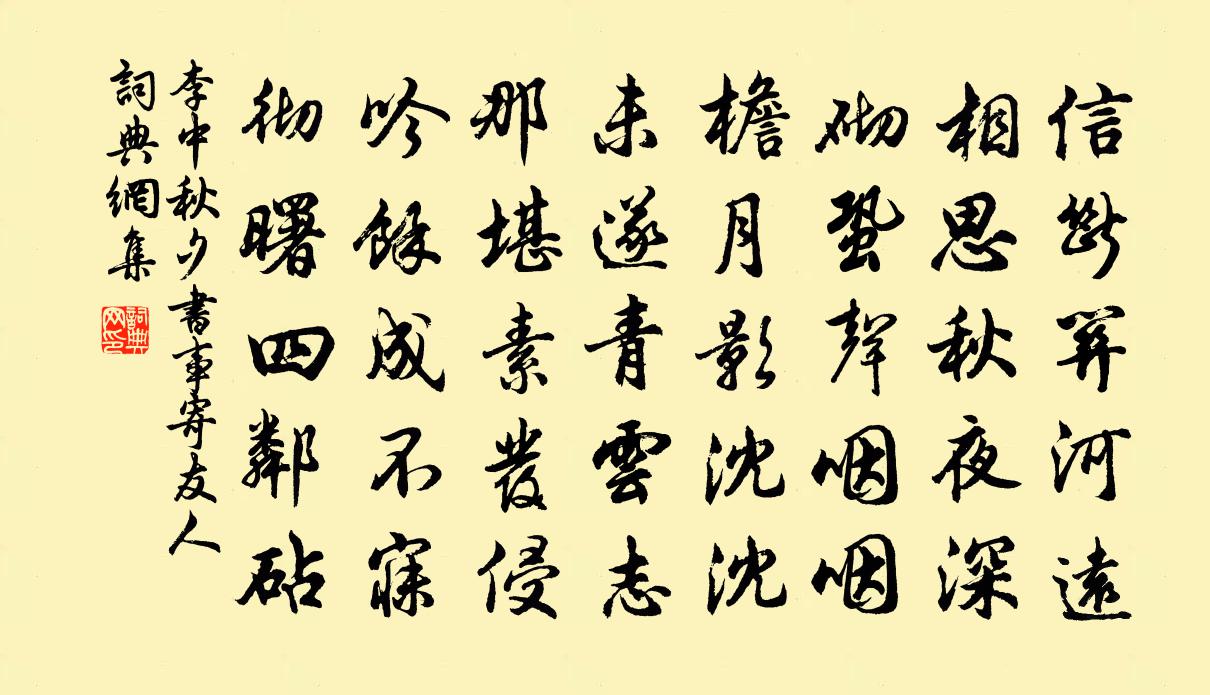 信斷關河遠
相思秋夜深
砌蛩聲咽咽
檐月影沈沈
未遂青雲志
那堪素發侵
吟餘成不寐
彻曙四鄰砧
李中秋夕書事寄友人
詞典網集
詞典网印